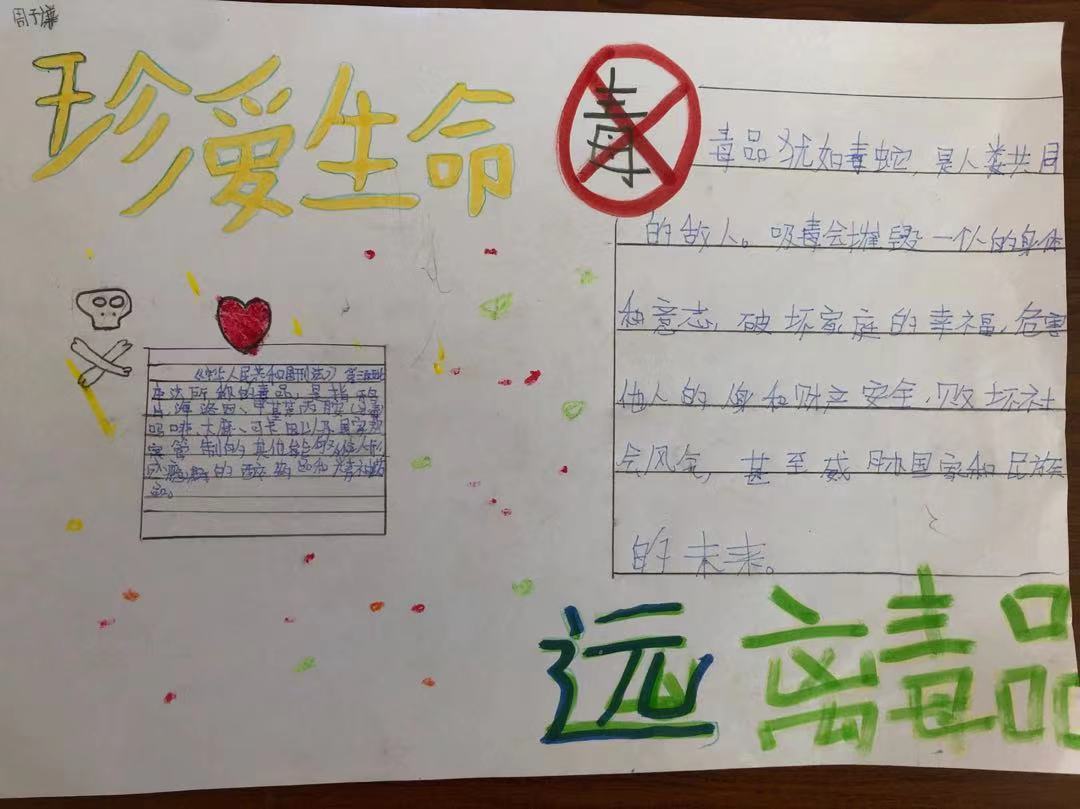 周子
珍爱生命
毒
毒品犹如毒蛇,是人类共同
的敌人。吸毒会摧毁一个人的身体
和意志,破坏家庭的幸福,危害
他人的身和财产安全,败坏社
会风气,甚至威胁国家和民族
的未来。
《中华人民共和国刑法》第三
本法所称的毒品,是指鸦
片、海洛因、甲基苯丙胺
吗啡、大麻、可卡因以及国家规
定管制的其他能够使人形
瘾的品和精神药
品。
远离毒品